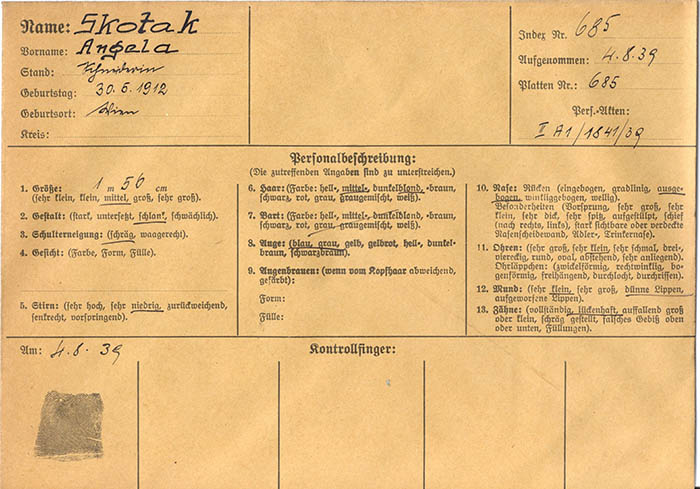 Name: Skotak
Vorname: Angela
Stand: Schneiderin
Geburtstag: 30.6.1912
Geburtsort: Wien
Kreis:
Index Nr. 685
Aufgenommen: 4.8.39
Platten Nr.: 685
Pers.-Akten:
II A1/1841/39
Personalbeschreibung:
(Die zutreffenden Angaben sind zu unterstreichen.)
1. Größe: 1 m 56 cm
(sehr klein, klein, mittel, groß, sehr groß).
2. Gestalt: (stark, untersetzt, schlank, schwächlich).
3. Schulterneigung: (schräg, waagerecht).
4. Gesicht: (Farbe, Form, Fülle).
5. Stirn: (sehr hoch, sehr niedrig, zurückweichend,
senkrecht, vorspringend).
6. Haar: (Farbe: hell-, mittel-, dunkelblond, -braun,
schwarz, rot, grau, graugemischt, weiß).
7. Bart: (Farbe: hell-, mittel-, dunkelblond, -braun,
schwarz, rot, grau, graugemischt, weiß).
8. Auge: (blau, grau, gelb, gelbrot, hell-, dunkel-
braun, schwarzbraun).
9. Augenbrauen: (wenn vom Kopfhaar abweichend,
gefärbt):
Form:
Fülle:
10. Nase: Rücken (eingebogen, gradlinig, ausge-
bogen, winkliggebogen, wellig).
Besonderheiten (Vorsprung, sehr groß, sehr
klein, sehr dick, sehr spitz, aufgestülpt, schief
(nach rechts, links), stark sichtbare oder verdeckte
Nasenscheidewand, Adler-, Trinkernase).
11. Ohren: (sehr groß, sehr klein, sehr schmal, drei-,
viereckig, rund, oval, abstehend, sehr anliegend).
Ohrläppchen: (zwickelförmig, rechtwinklig, bo-
genförmig, freihängend, durchlocht, durchrissen).
12. Mund: (sehr klein, sehr groß, dünne Lippen,
aufgeworfene Lippen).
13. Zähne: (vollständig, lückenhaft, auffallend groß
oder klein, schräg gestellt, falsches Gebiß oben
oder unten, Füllungen).
Am: 4.8.39
Kontrollfinger: